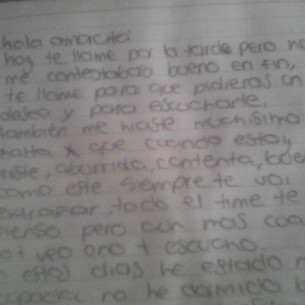 hola amacita
hoy te llame por la tarde pero no
me contestabas bueno en fin,
te llame para que pidieras un
deseo y para escucharte,
también me hiciste muchisima
falta x que cuando estoy
triste, aburrida, contenta, bue
como este siempre te voi
extrañar, todo el time te
pienso pero aun mas cua
not veo ono t escucho.
estos dias he estado
no he dormido